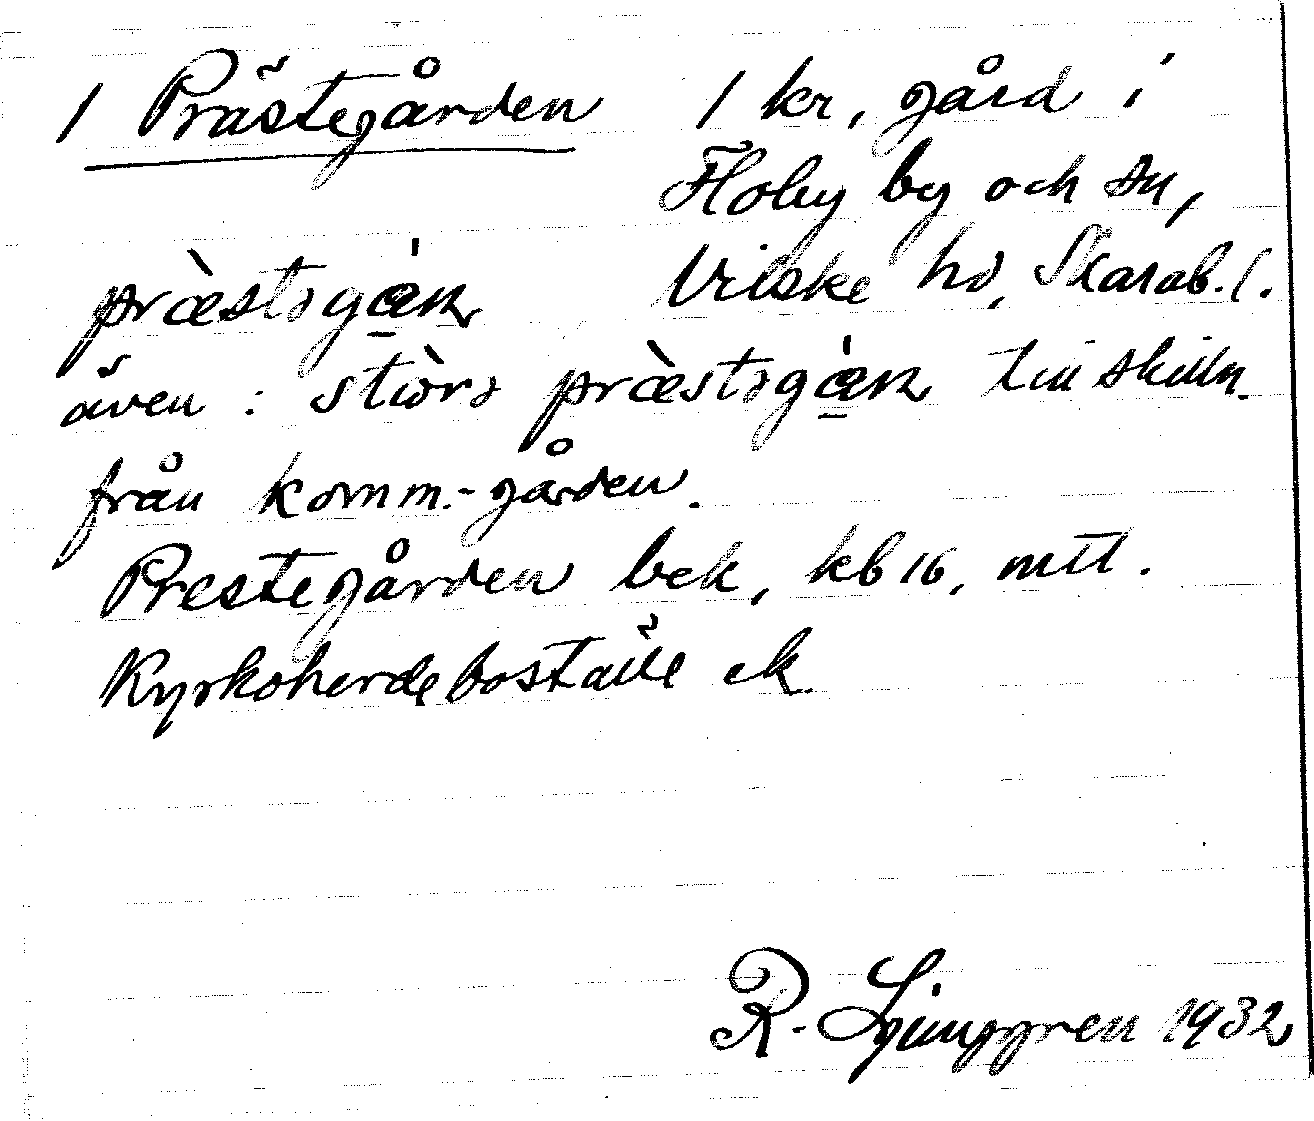 1 Prästegården
1 kr, gård i
Floby by och sn,
Vilske hd, Skarab. l.
præ̀stəgɑ́ɳ
även : stòrə præ̀stəgɑ́ɳ till skilln.
från komm.-gården.
Prestegården bek, kb 16, mtl.
Kyrkoherdeboställe ek.
R. Ljunggren 1932